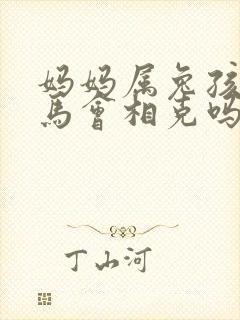 妈妈属兔孩
馬會相克吗
丁山河